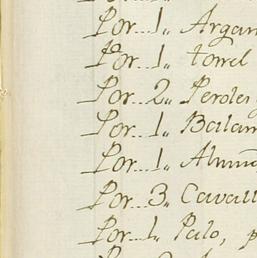 Por...1,, Argan
Por...1,, torrel
Por...2,, Peroles
Por...1,, Balan
Por...1,, Almu
Por...3,, Cavall
Por...1,, Palo, p
Por